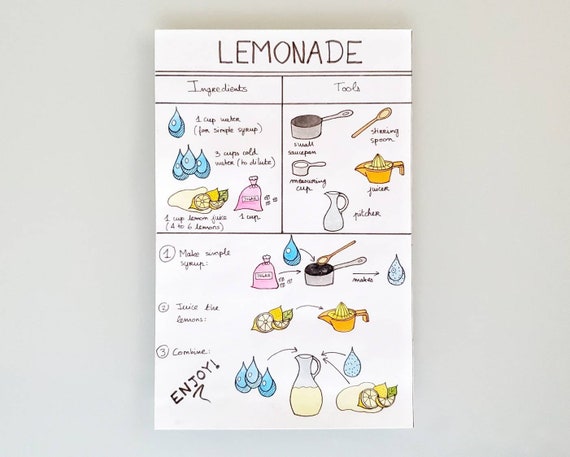 LEMONADE
Ingredients
Tools
1 cup water
(for simple syrup)
3 cups cold
water (to dilute)
1 cup lemon juice
(4 to 6 lemons)
SUGAR
1 cup
small
saucepan
stirring
spoon
measuring
cup
juicer
pitcher
1 Make simple
syrup:
SUGAR
makes
2 Juice the
lemons:
3 Combine:
ENJOY!